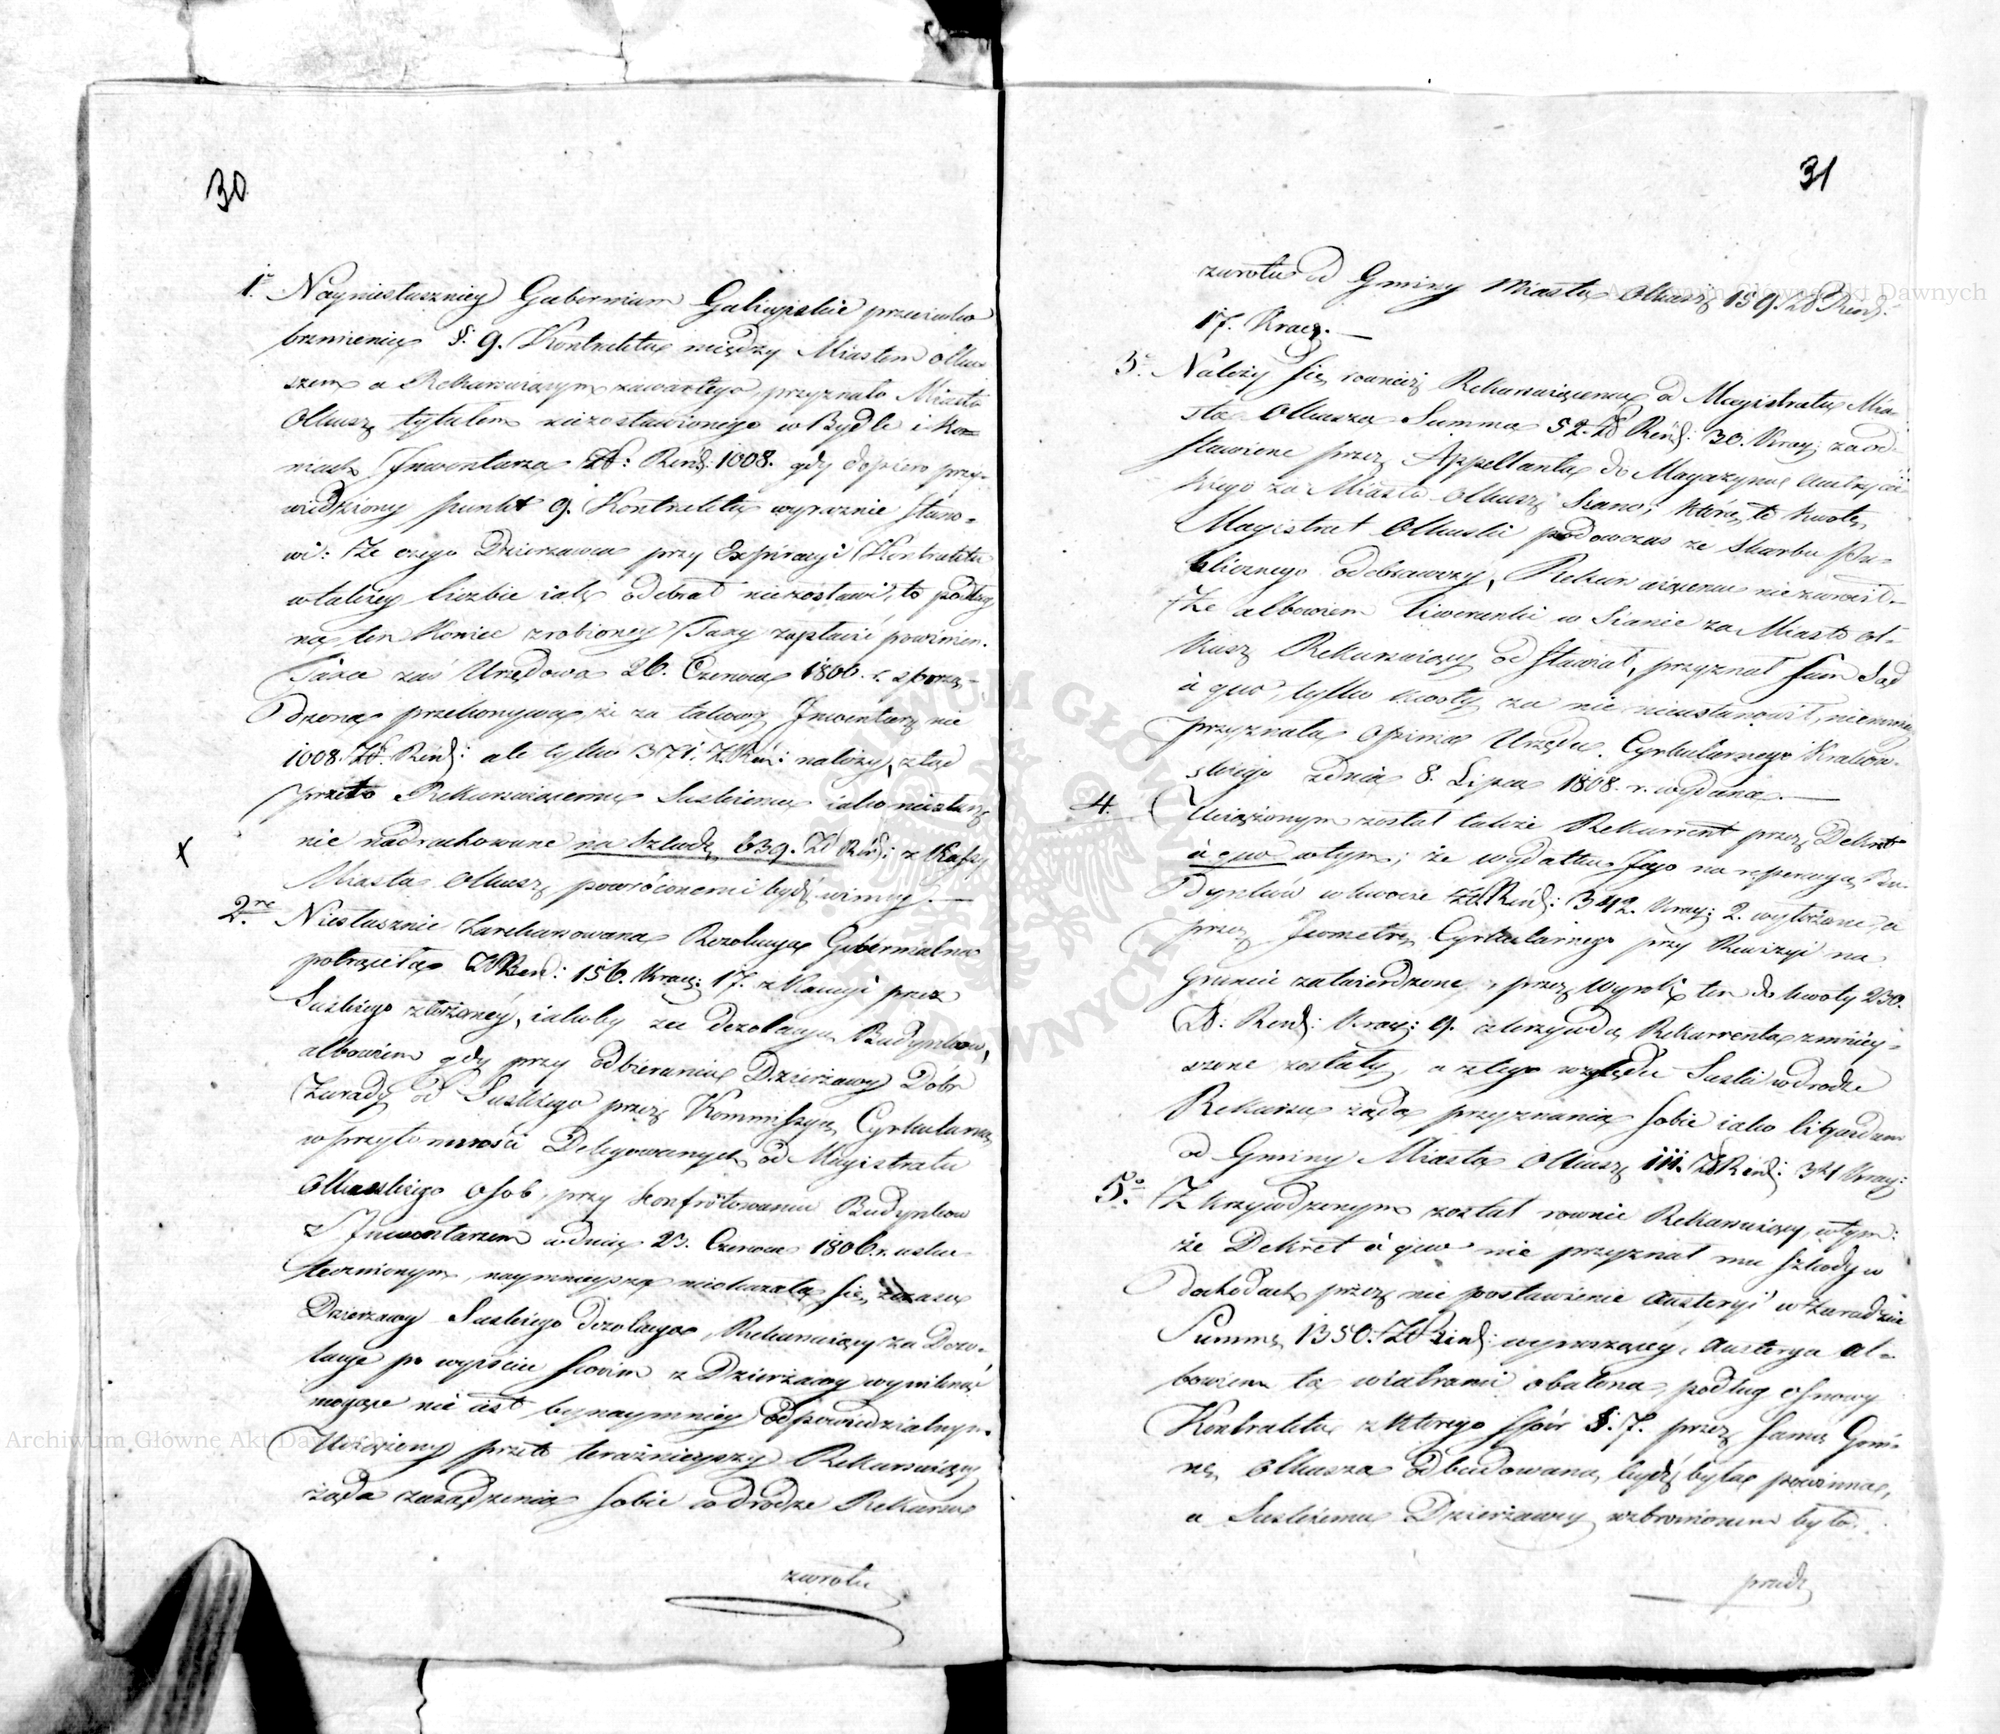 30
1º Nayniesłuszniey Gubernium Galicyiskie przeciwko
brzmieniu §: 9. Kontraktu między Miastem Olku-
szem a Rekuruiącym zawartego, przyznało Miastu
Olkusz tytułem niezostawionego w Bydle i Ko-
niach Inwentarza Zł: Reńs: 1008. gdy dopiero przy-
wiedziony punkt 9. Kontraktu wyraznie stano-
wi: Że czego Dzierzawca przy Expiracyi Kontraktu
w takiey liczbie iak odebrał niezostawi, to podług
na ten koniec zrobioney Taxy zapłacić powinien.
Taxa zaś Urzędowa 26. Czerwca 1806. r. sporzą-
dzona przekonywa, iż za takowy Inwentarz nie
1008. Zł. Reńs: ale tylko 371. Z. Reń: należy, ztąd
przeto Rekuruiącemu Suskiemu iako niesłusz
nie nadrachowane na Szkodę 639. Zł Reńs: z Kassy
Miasta Olkusz powróconemi bydź winny.—
2re Niesłusznie zarekurowana Rezolucya Gubernialna
potrąciła Zł Reńs: 156. Kray: 17. z Kaucyi przez
Suskiego złożoney, iakoby za dezolacyą Budynków,
albowiem gdy przy odbieraniu Dzierżawy Dóbr
Żurady od Suskiego przez Kommissyą Cyrkularną
w przytomności Delegowanych od Magistratu
Olkuskiego osob, przy konfrotowaniu Budynkow
z Inwentarzem w dniu 23. Czerwca 1806. r. usku-
tecznionym, naymnieysza nieokazała się, z czasu
Dzierzawy Suskiego dezolacya, Rekuruiący za Dezo-
lacye po wyiściu swoim z Dzierżawy wyniknąć
mogące nie iest bynaymniey odpowiedzialnym.
Uciążony przeto teraźnieyszy Rekuruiący
żąda zasądzenia sobie w drodze Rekursu
zwrotu
31
zwrotu od Gminy Miasta Olkusz 159. Zł Reńs:
17. Kray.—
3º Należy się rownież Rekuruiącemu od Magistratu Mia-
sta Olkusza Summa 52. Zł Reńs: 30. Kray: za od-
stawione przez Appellanta do Magazynu Austryac-
kiego za Miasto Olkusz Siano, którę to kwotę
Magistrat Olkuski podowczas ze Skarbu Pu-
blicznego odebrawszy, Rekuruiącemu niezwrócił.—
Że albowiem liwerunki w Sianie za Miasto Ol-
kusz Rekuruiący odstawiał, przyznał sam Sąd
à quo, tylko kwoty za nie nieustanowił, niemniey
przyznała opinia Urzędu Cyrkularnego Krakow-
skiego z dnia 8. Lipca 1808. r. wydana.—
4. Uciążonym został także Rekurrent przez Dekret
à quo w tym; że wydatki Jego na reperacyą Bu-
dynków w kwocie Zł. Reńs: 342. Kray: 2. wyłożone, a
przez Jeometrę Cyrkularnego przy Rewizyi na
gruncie zatwierdzone, przez Wyrok ten do kwoty 230.
Zł: Reńs: Kray: 9. z krzywdą Rekurrenta zmniey-
szone zostały, a z tego względu Suski w drodze
Rekursu żąda przyznania sobie iako liquidum
od Gminy Miasta Olkusz 111. Zł Reńs: 34 Kray:
5º Ukrzywdzonym został rownie Rekuruiący w tym:
że Dekret à quo nie przyznał mu szkody w
dochodach przez nie postawienie Austeryi w Żuradzie
Summę 1350. Zł Reńs: wynoszącey, Austerya al-
bowiem ta wiatrami obalona, podług osnowy
Kontraktu z którego spór §. 7. przez samą Gmi-
nę Olkusza odbudowana bydź była powinna,
a Suskiemu Dzierżawcy wzbronionem było